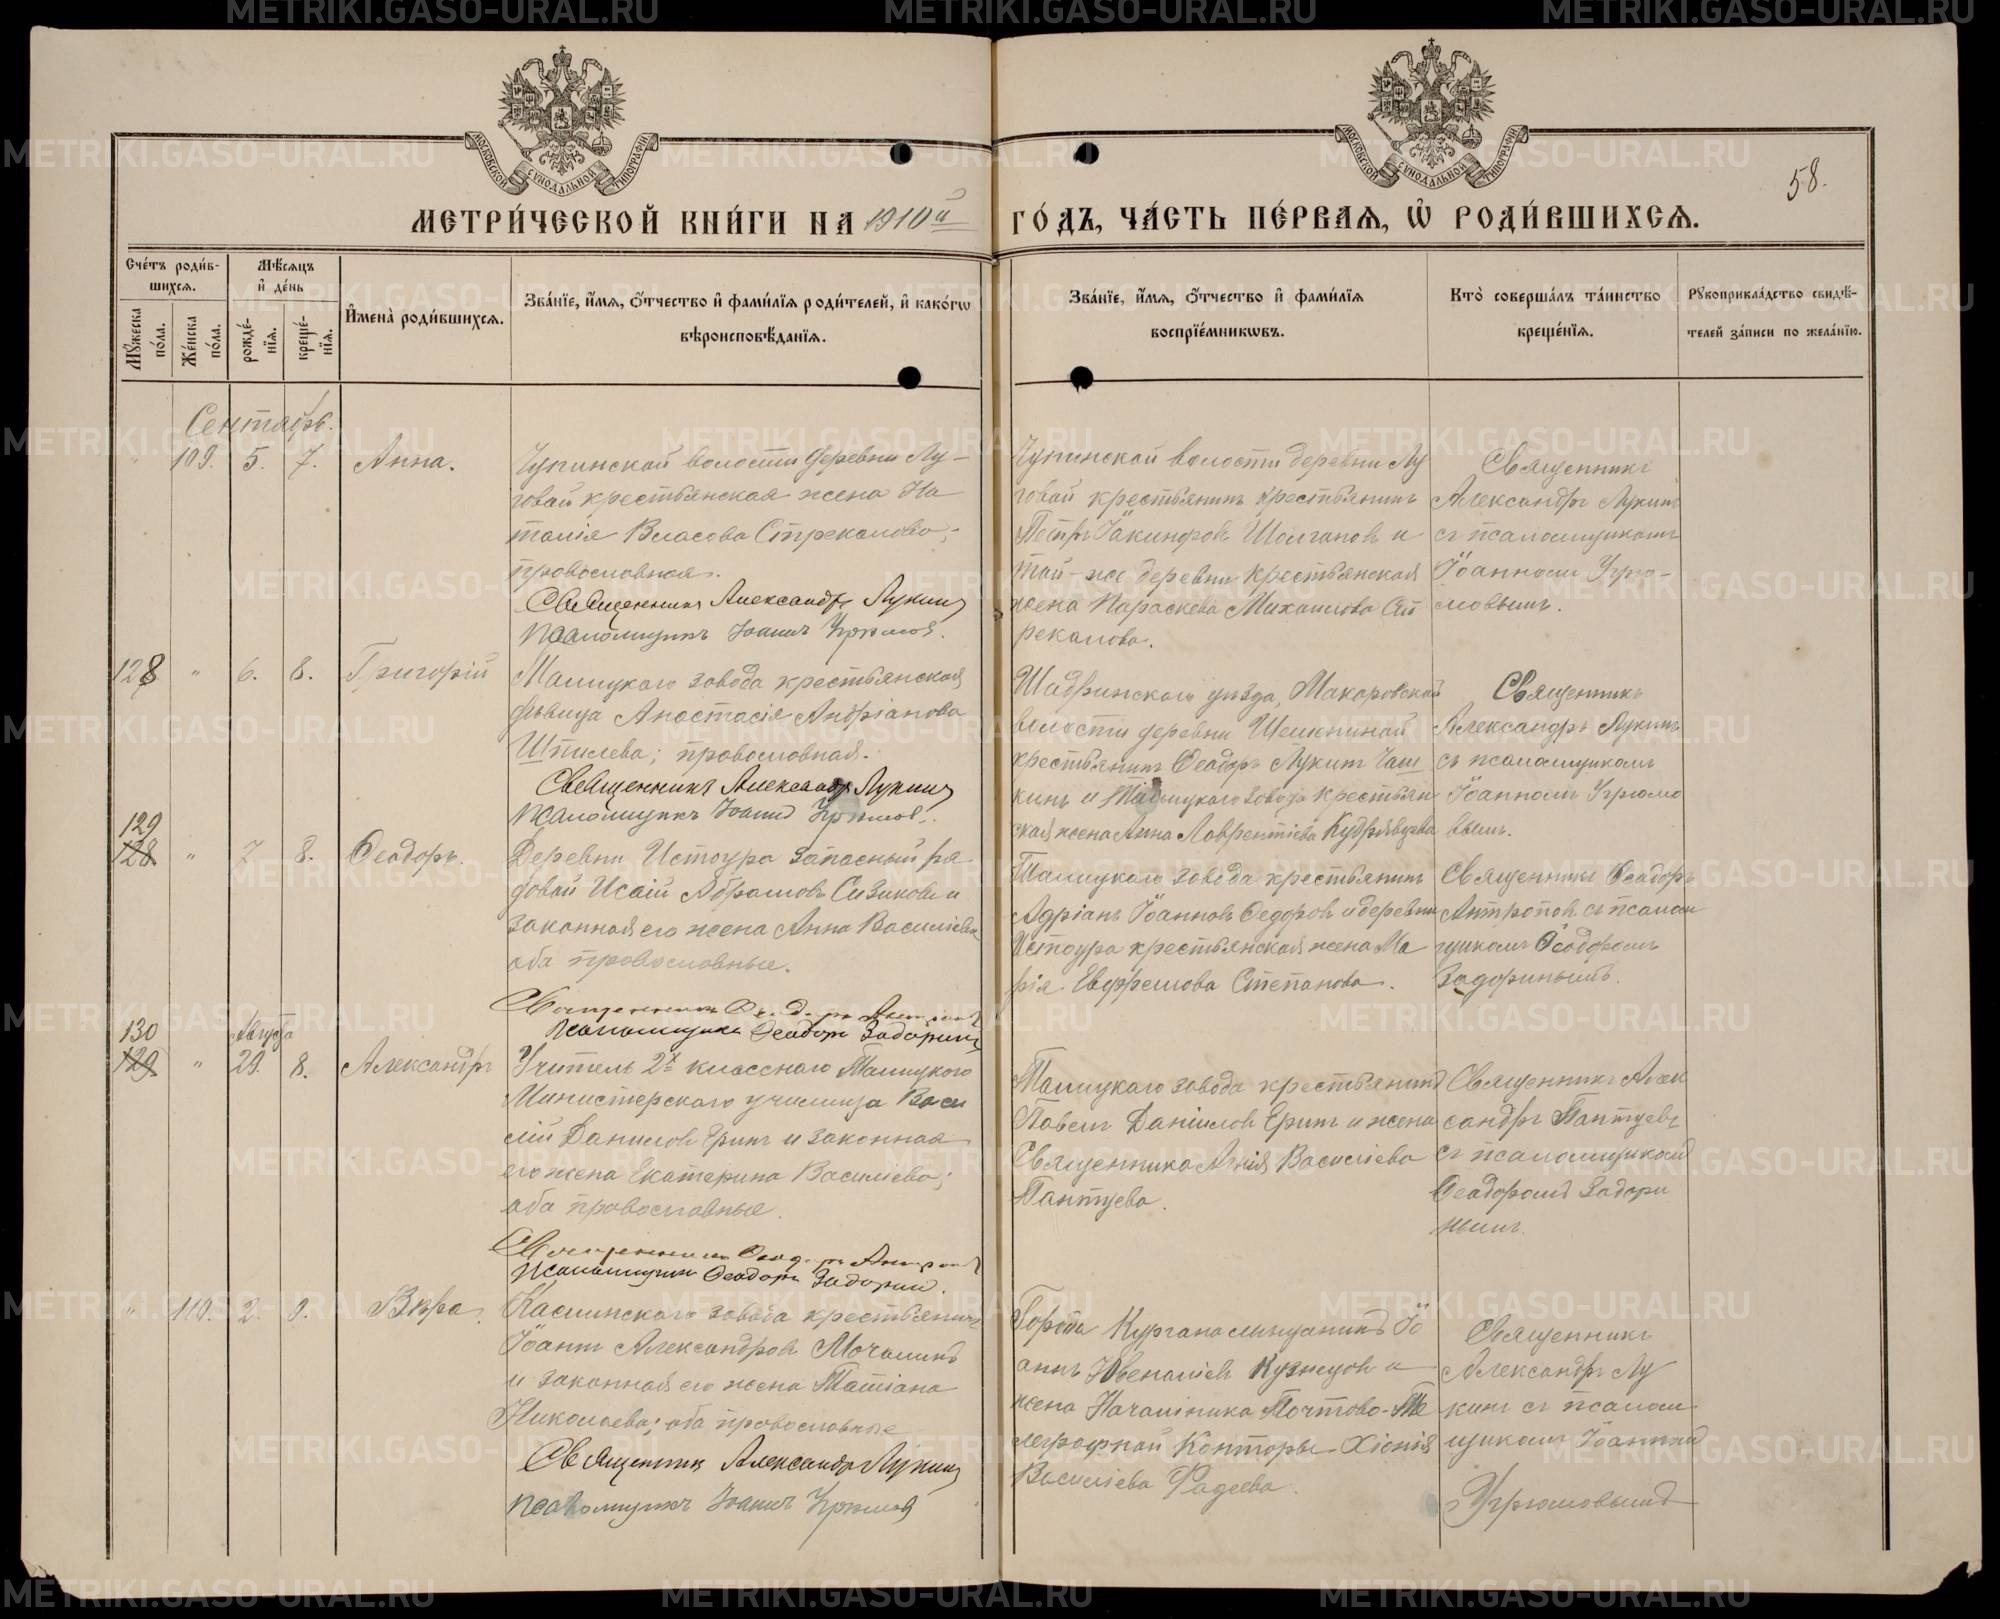 МЕТРИ́ЧЕСКОЙ КНИ́ГИ НА 1910й ГО́ДЪ, ЧА́СТЬ ПЕ́РВАЯ, Ѡ РОДИ́ВШИХСЯ.
58.
МОСКОВСКОЙ СѴНОДАЛЬНОЙ ТИПОГРАФІИ
МОСКОВСКОЙ СѴНОДАЛЬНОЙ ТИПОГРАФІИ
Сче́тъ роди́в-
шихся.
Му́жеска по́ла.
Же́нска по́ла.
Мѣ́сяцъ
и҆ де́нь
рожде́-
нїя.
креще́-
нїя.
И҆мена̀ роди́вшихся.
Зва́нїе, и҆́мя, ѻ҆́тчество и҆ фами́лїя роди́телей, и҆ како́гѡ
вѣроисповѣ́данїя.
Зва́нїе, и҆́мя, ѻ҆́тчество и҆ фами́лїя
воспрїе́мникѡвъ.
Кто̀ соверша́лъ та́инство
креще́нїя.
Рꙋкоприкла́дство свидѣ́-
телей за́писи по жела́нїю.
Сентябрь.
" 109. 5. 7. Анна.
Чупинской волости деревни Лу-
говой крестьянская жена На
талія Власова Стрекалова;
православная.
Священникъ Александръ Лукинъ
Псаломщикъ Іоаннъ Угрюмов.
Чупинской волости деревни Лу
говой крестьянинъ крестьянинъ
Петръ Іакинфовъ Шолгановъ и
той-же деревни крестьянская
жена Параскева Михаилова Ст
рекалова.
Священникъ
Александръ Лукинъ
съ псаломщикомъ
Іоанномъ Угрю-
мовымъ.
128 " 6. 8. Григорій
Талицкаго завода крестьянская
дѣвица Анастасія Андріанова
Шпилева; православная.
Священникъ Александръ Лукинъ
Псаломщикъ Іоаннъ Угрюмов.
Шадринскаго уѣзда, Макаровской
волости деревни
крестьянинъ Ѳеодоръ Лукинъ Чаш
кинъ и Талицкаго завода крестьян
ская жена Анна Лаврентіева Кудрявцева
Священникъ
Александръ Лукинъ
съ псаломщикомъ
Іоанномъ Угрюмо
вымъ.
129
128 " 7 8. Ѳеодоръ.
Деревни Истоура запасный ря
довой Исаій Абрамовъ Сизиковъ и
законная его жена Анна Василіева
оба православные.
Священникъ Ѳеодоръ
Псаломщикъ Ѳеодоръ Задоринъ
Талицкаго завода крестьянинъ
Адріанъ Іоанновъ Ѳедоровъ и деревни
Истоура крестьянская жена Ма
рія Евфремова Степанова.
Священникъ Ѳеодоръ
Антроповъ съ псалом
щикомъ Ѳеодоромъ
Задоринымъ.
130
129 " Августа 29. 8. Александръ
Учитель 2х класснаго Талицкаго
Министерскаго училища Васи
лій Даниловъ Еринъ и законная
его жена Екатерина Василіева;
оба православные.
Священникъ
Псаломщикъ Ѳеодоръ Задорин.
Талицкаго завода крестьянинъ
Павелъ Даніиловъ Еринъ и жена
Священника Агнія Василіева
Пантуева.
Священникъ Алек
сандръ Пантуевъ
съ псаломщикомъ
Ѳеодоромъ Задори
нымъ.
" 110. 2. 9. Вѣра.
Каслинскаго завода крестьянинъ
Іоаннъ Александровъ Мочалинъ
и законная его жена Татіана
Николаева; оба православные
Священникъ Александръ Лукинъ
Псаломщикъ Іоаннъ Угрюмов
Города Кургана мѣщанинъ Іо
аннъ Ювеналіевъ Кузнецовъ и
жена Начальника Почтово-Те
леграфной Конторы Хіонія
Василіева Фадеева.
Священникъ
Александръ Лу
кинъ съ псалом
щикомъ Іоанномъ
Угрюмовымъ
METRIKI.GASO-URAL.RU